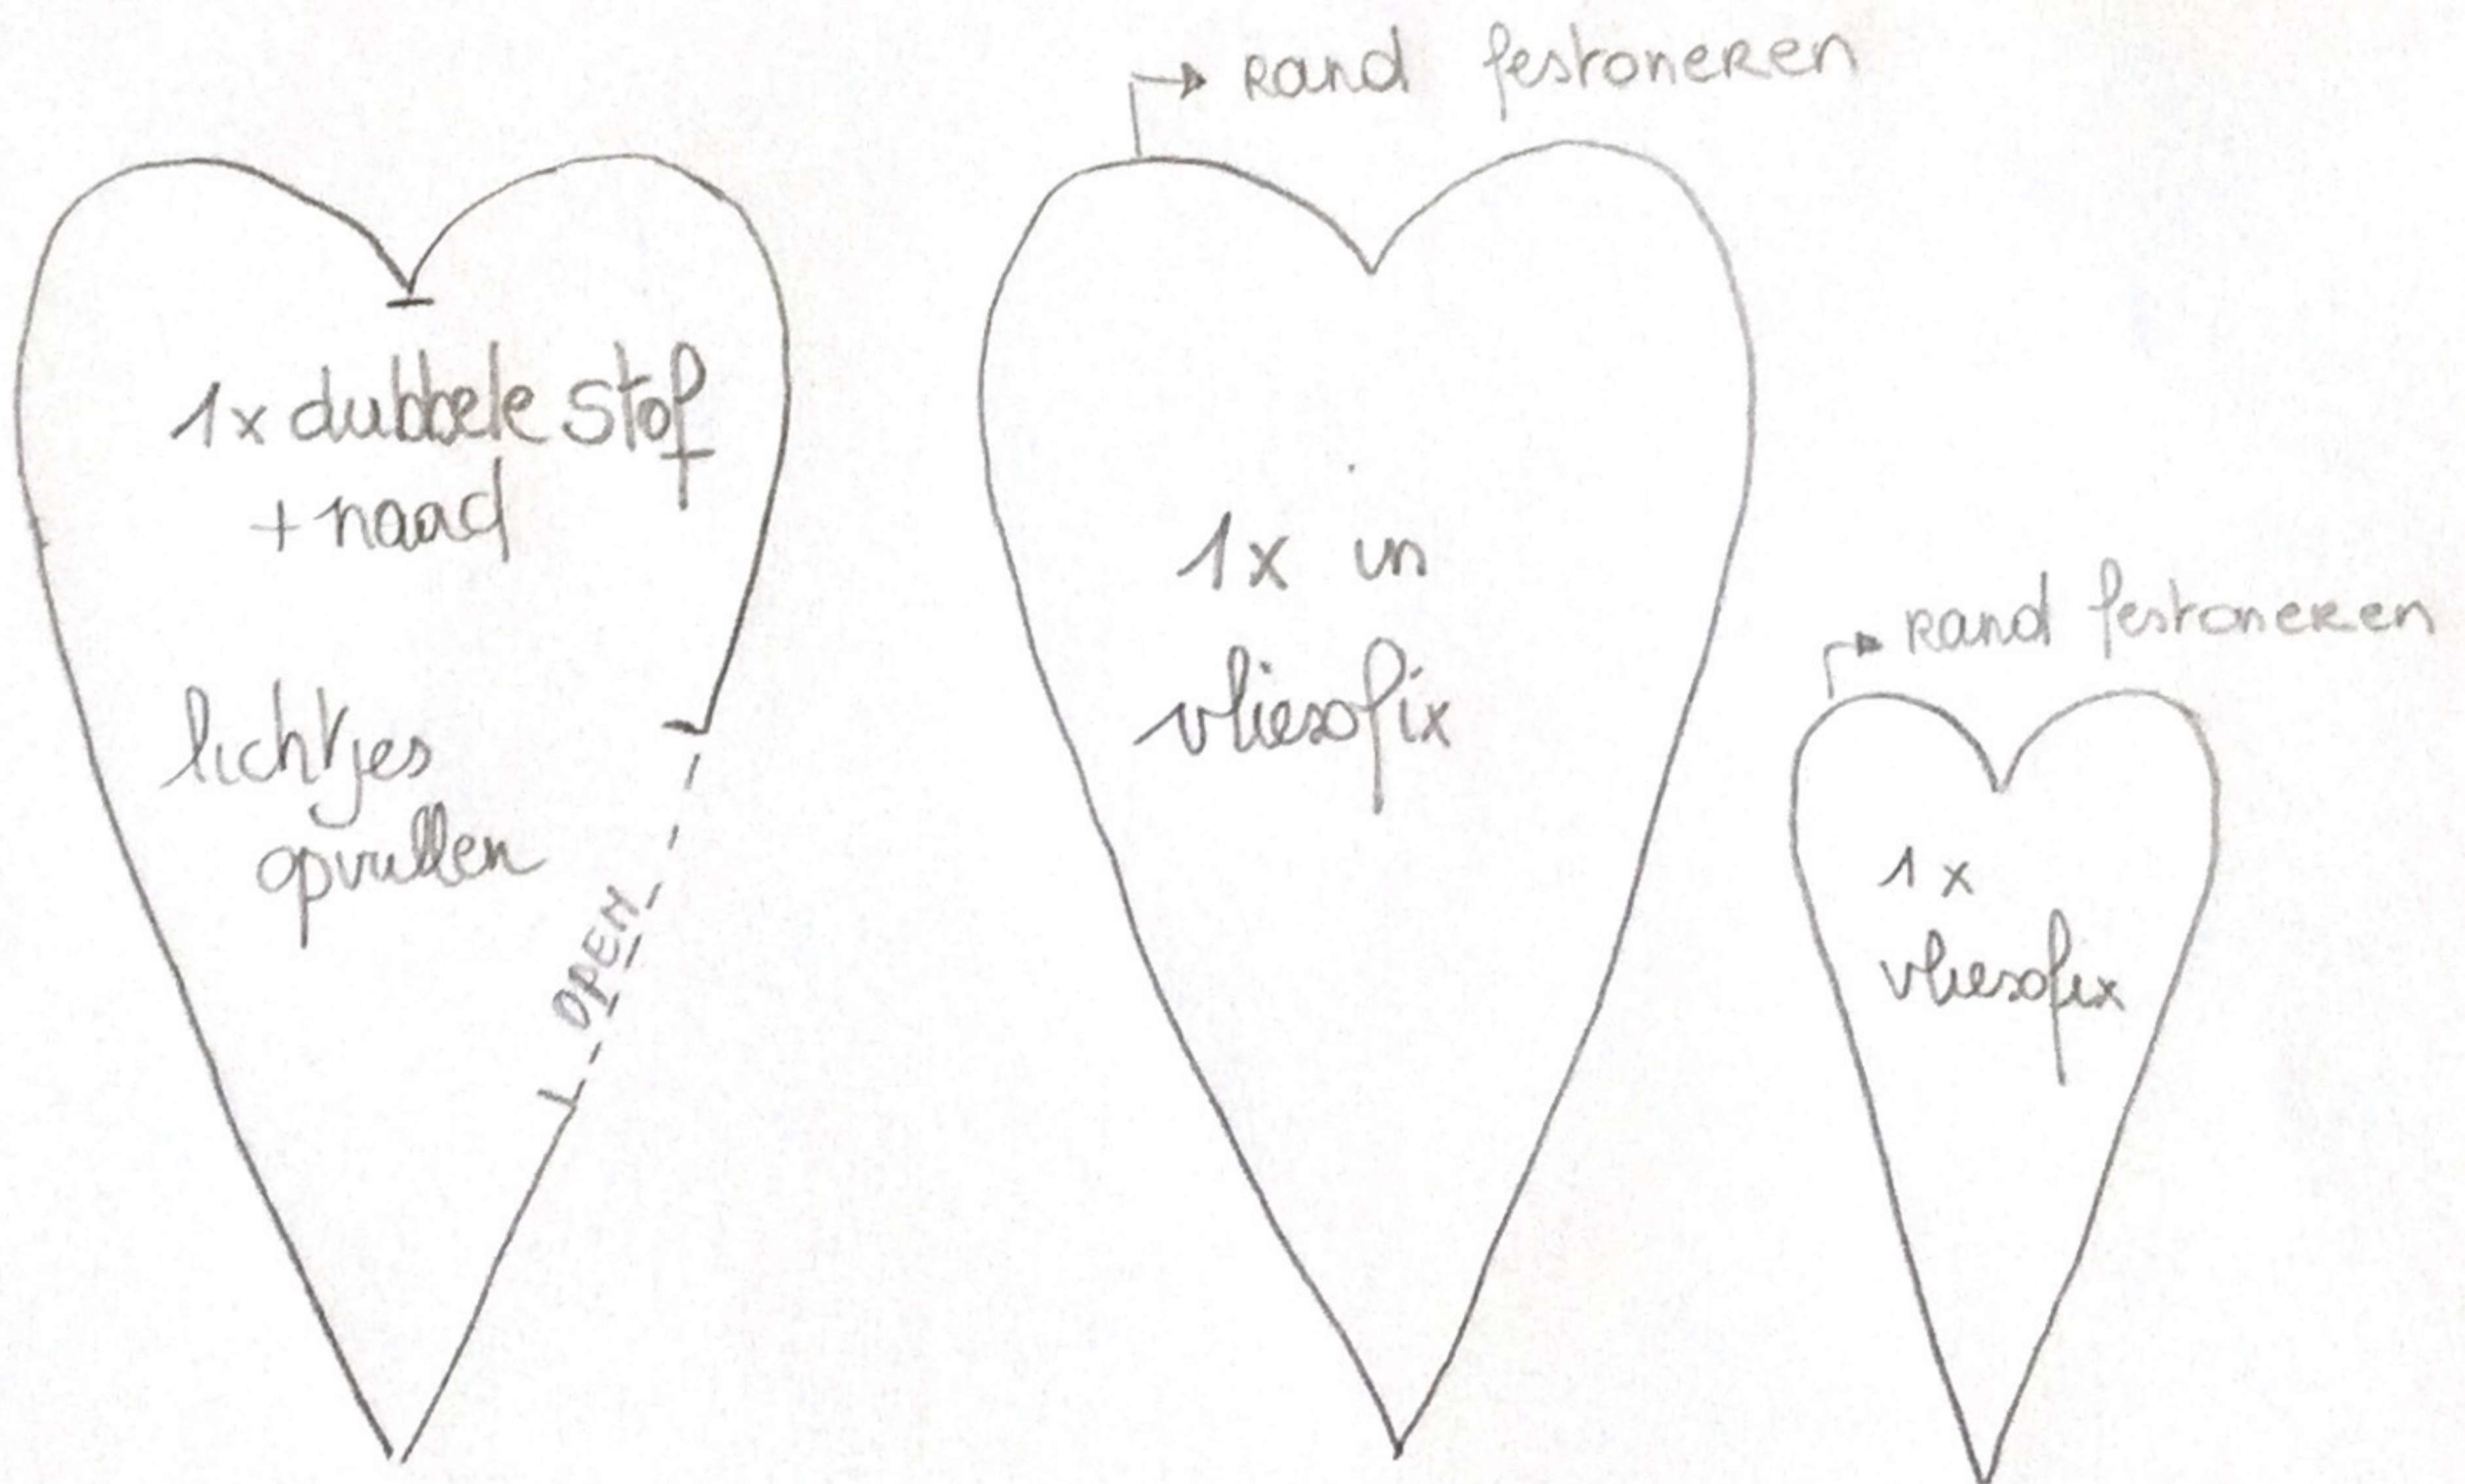 1x dubbele stof
+ naad
lichtjes
opvullen
OPEN
rand festoneren
1x in
vliesofix
rand festoneren
1x
vliesofix